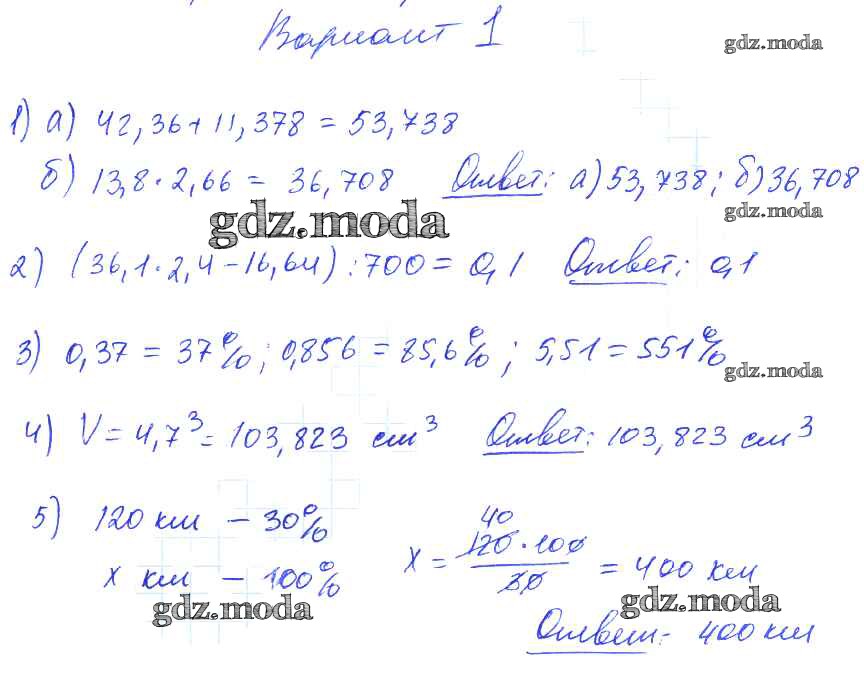 Вариант 1
gdz.moda
1) а) 42,36+11,378 = 53,738
б) 13,8·2,66 = 36,708 Ответ: а) 53,738; б) 36,708
gdz.moda
gdz.moda
2) (36,1·2,4-16,64):700 = 0,1 Ответ: 0,1
3) 0,37 = 37%; 0,856 = 85,6%; 5,51 = 551%
gdz.moda
4) V = 4,7³ = 103,823 см³ Ответ: 103,823 см³
5) 120 км – 30%
x км – 100%
40
x = 120·100/30 = 400 км
gdz.moda
gdz.moda
Ответ: 400 км